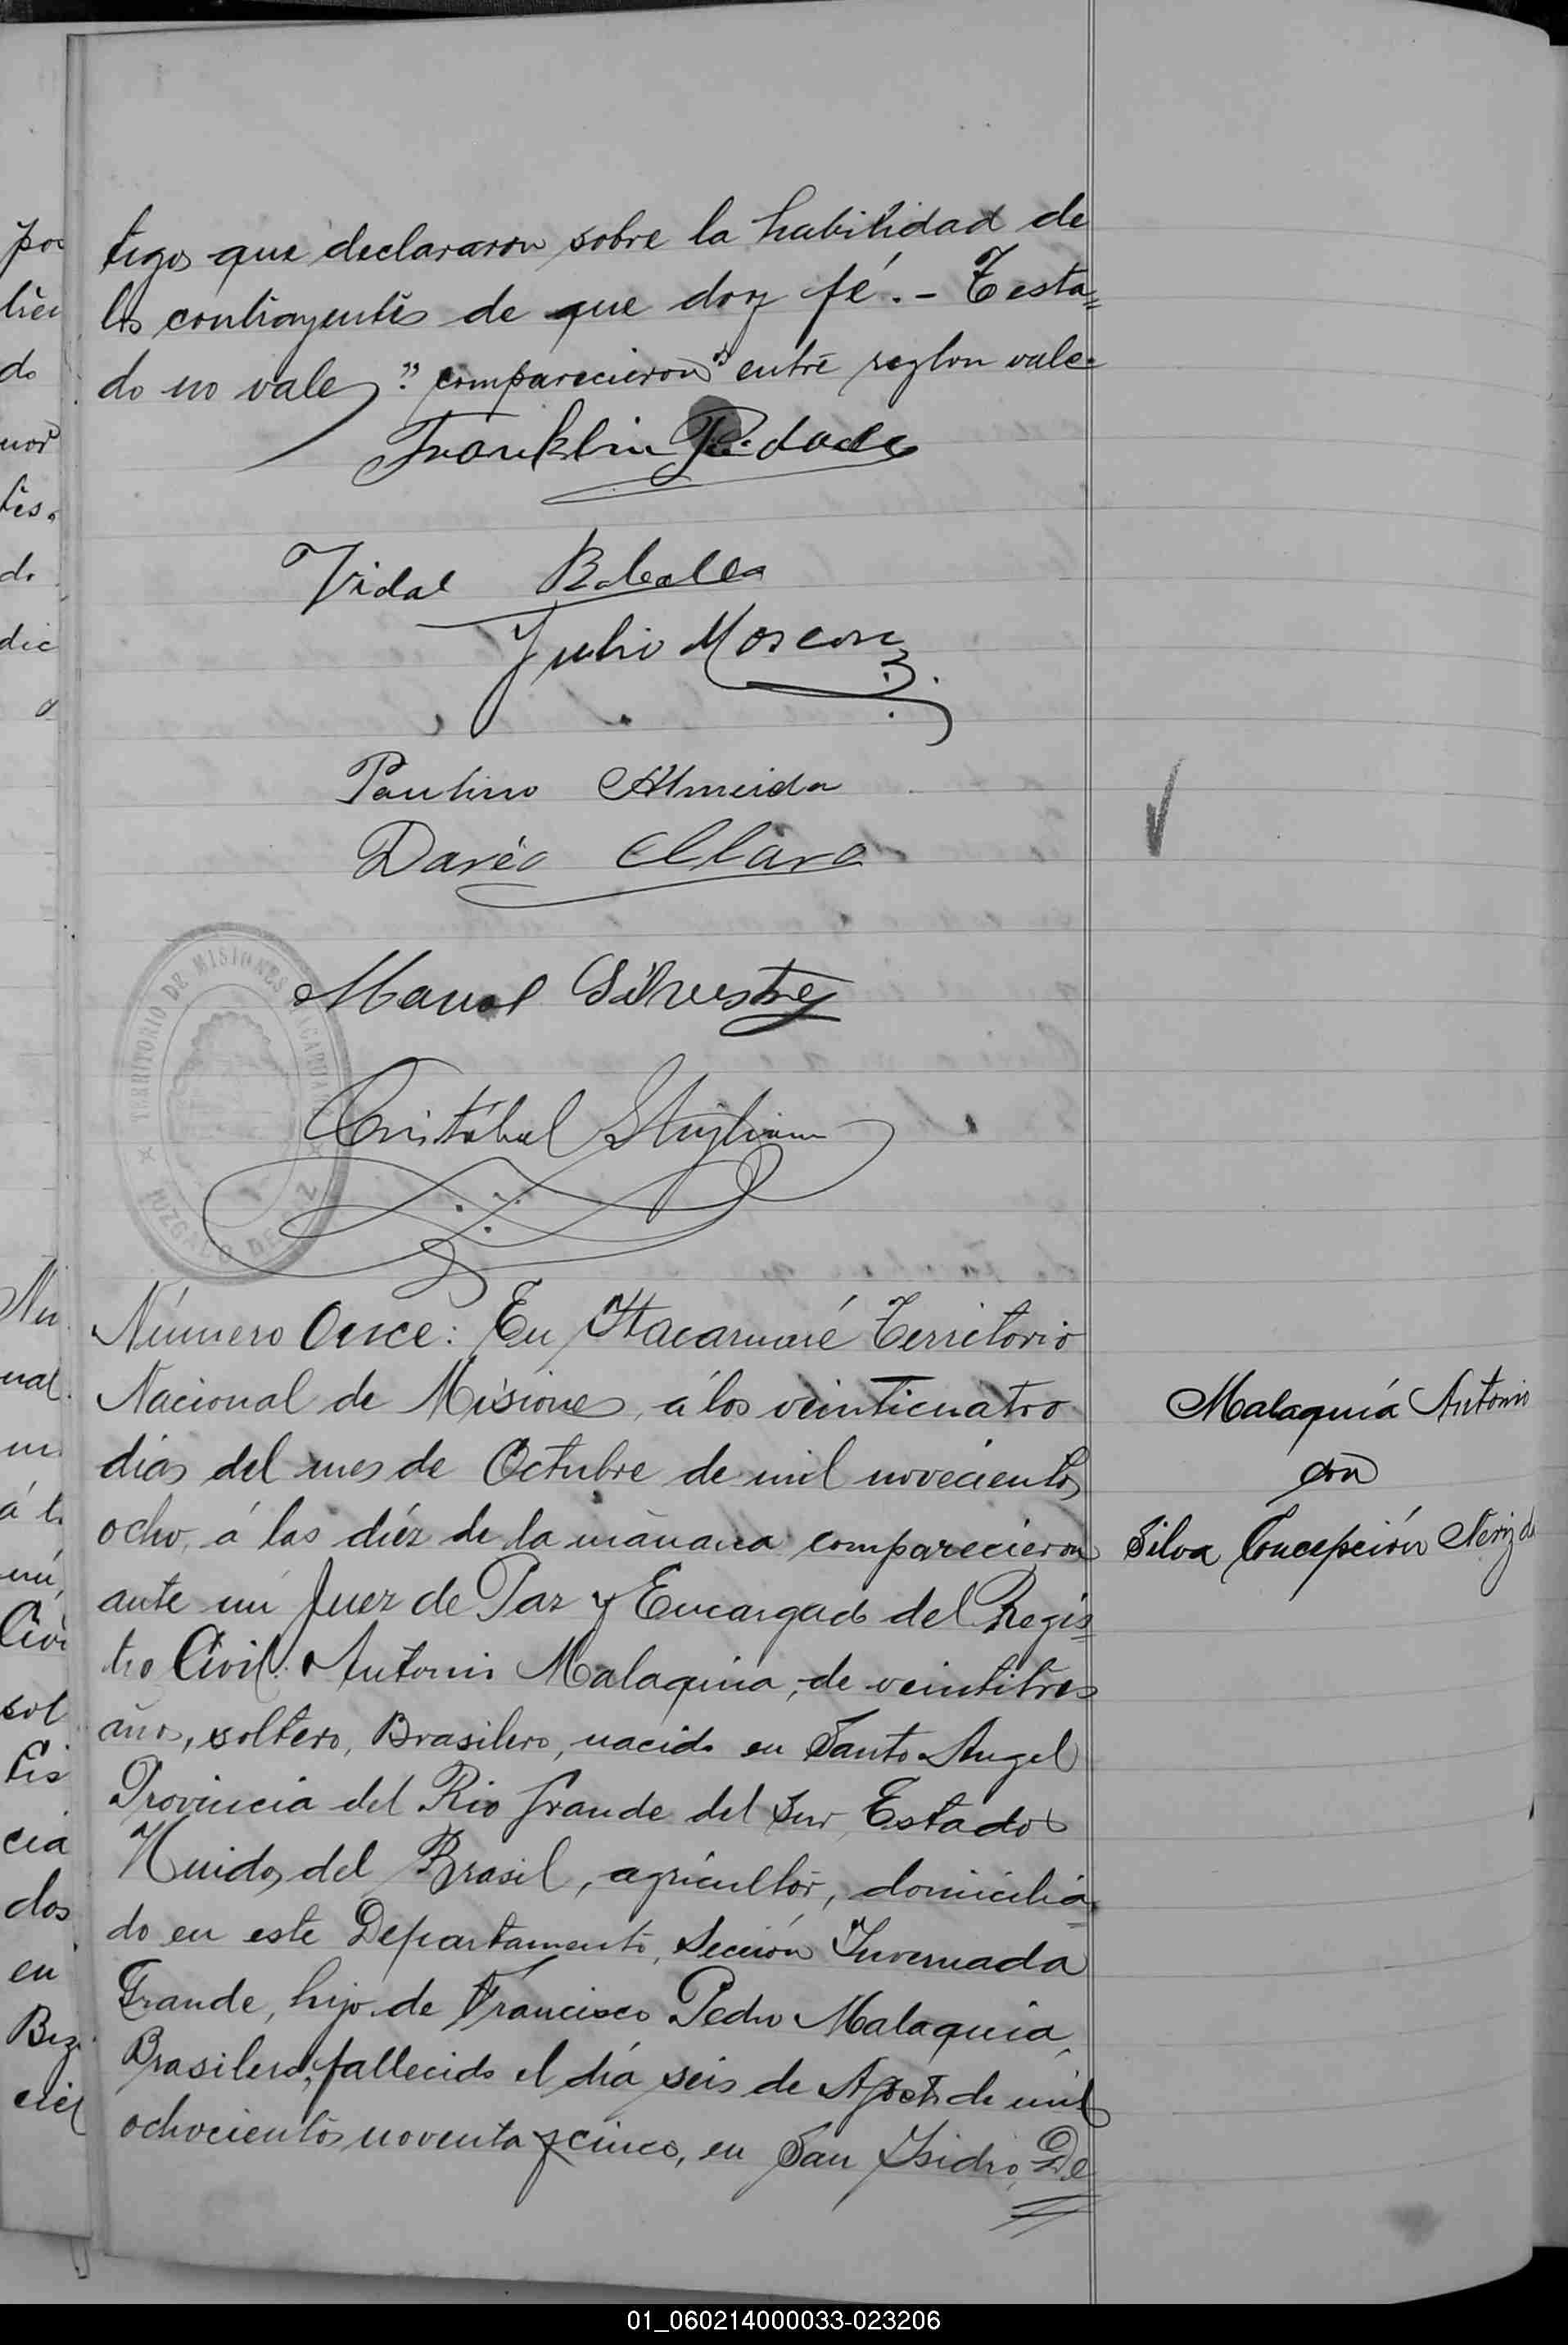 tigos que declararon sobre la habilidad de
los contrayentes de que doy fé.- Testa=
do no vale, "comparecieron" entre reglon vale=
Franklin Piedade
Vidal
Julio Moscon
Paulino Almeida
Darío Claro
Manoel Silvestre
Cristóbal Stigliano
TERRITORIO DE MISIONES
ITACARUARÉ
JUZGADO DE PAZ
Número Once: En Itacaruaré Territorio
Nacional de Misiones, á los veinticuatro
dias del mes de Octubre de mil novecientos
ocho, á las diéz de la mañana comparecieron
ante mi Juez de Paz y Encargado del Regis=
tro Civil: Antonio Malaquia, de veintitres
años, soltero, Brasilero, nacido en Santo Angel
Provincia del Rio Grande del Sur, Estados
Unidos del Brasil, agricultor, domicilia=
do en este Departamento, Sección Invernada
Grande, hijo de Francisco Pedro Malaquia,
Brasilero, fallecido el día seis de Agosto de mil
ochocientos noventa y cinco, en San Isidro, De=
Malaquía Antonio
con
Silva Concepción Neriz de
por
do
tes.
di
dic
Nu
nal
Civi
sol
cia
dos
en
01_060214000033-023206